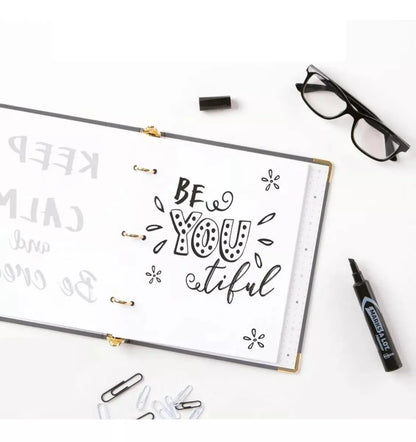 KEEP
CALM
and
Be crea
BE
YOU
tiful
MARKS
A LOT